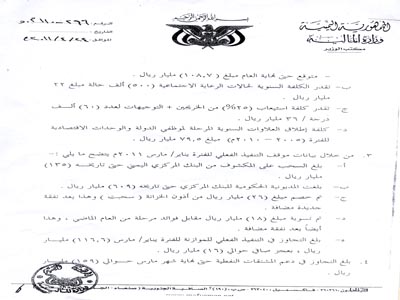 بسم الله الرحمن الرحيم
الجمهورية اليمنية
وزارة المالية
مكتب الوزير
التاريخ :
- متوقع حتى نهاية العام مبلغ (١٠٨,٧) مليار ريال .
ب- تقدر الكلفة السنوية لحالات الرعاية الاجتماعية (٥٠٠) ألف حالة مبلغ ٢٢
مليار ريال .
ج- تقدر كلفة استيعاب (٢٥%) من الخريجين + التوجيهات لعدد (٦٠) ألف
درجة / ٣٦ مليار ريال .
د- كلفة إطلاق العلاوات السنوية المرحلة لموظفي الدولة والوحدات الاقتصادية للفترة
(٢٠٠٥ – ٢٠١٠م) مبلغ ٧٩,٥ مليار ريال .
٣. من خلال بيانات موقف التنفيذ الفعلي للفترة يناير/ مارس ٢٠١١م يتضح ما يلي :-
أ- بلغ السحب على المكشوف من البنك المركزي اليمني حتى تاريخه (١٣٥)
مليار ريال .
ب- بلغت المديونية الحكومية للبنك المركزي حتى تاريخه (٦٠٩) مليار ريال .
ج- تم خصم مبلغ (٢٦) مليار ريال من أذون الخزانة (سحبت) وهذا يعد نفقة
جديدة مضافة .
د- تم تسوية مبلغ (١٨) مليار ريال مقابل فوائد مرحلة من العام الماضي ، وهذا
أيضاً يعد نفقة مضافة .
هـ- بلغ التجاوز في التنفيذ الفعلي للموازنة للفترة يناير/ مارس (١١٦,٦) مليار
ريال ، بعجز صافي حوالي (١٦) مليار ريال .
٤. بلغ التجاوز في دعم المشتقات النفطية حتى نهاية شهر مارس حوالي (١٥٩) مليار